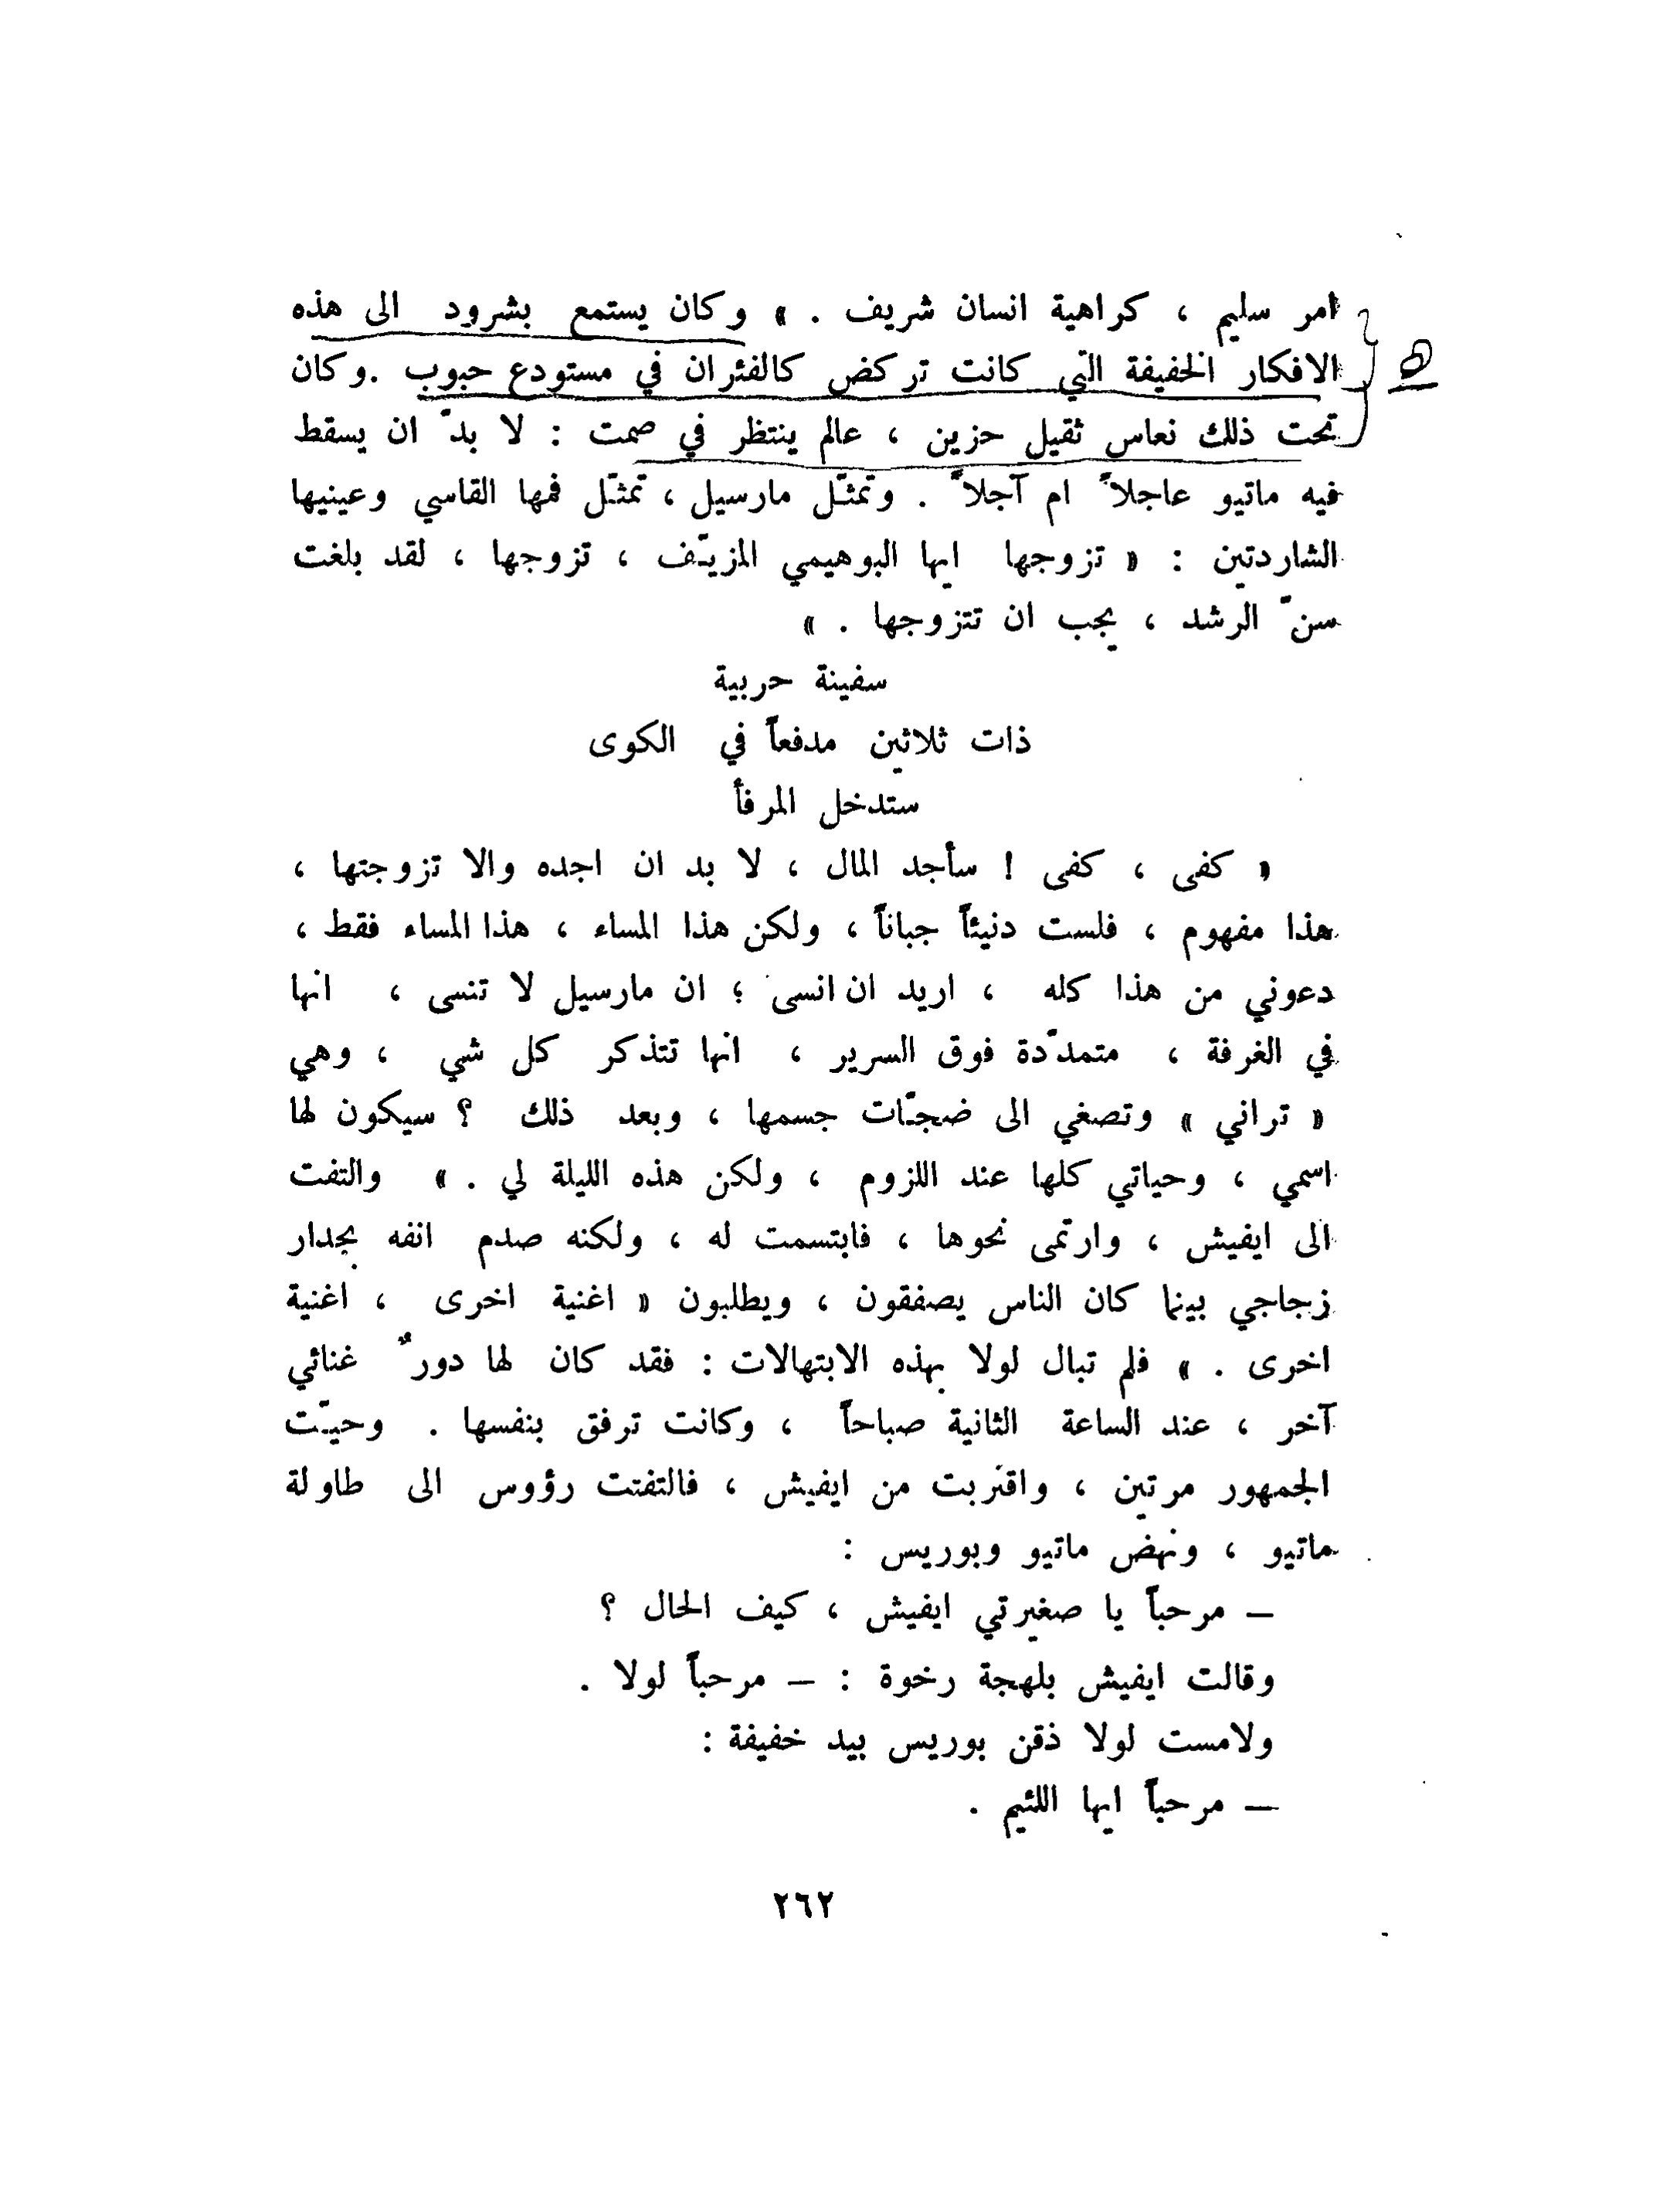 امر سليم ، كراهية انسان شريف . » وكان يستمع بشرود الى هذه
الافكار الخفيفة التي كانت تركض كالفئران في مستودع حبوب .وكان
تحت ذلك نعاس ثقيل حزين ، عالم ينتظر في صمت : لا بدّ ان يسقط
فيه ماتيو عاجلاً ام آجلاً . وتمثّل مارسيل ، تمثّل فمها القاسي وعينيها
الشاردتين : « تزوجها ايها البوهيمي المزيّف ، تزوجها ، لقد بلغت
سنّ الرشد ، يجب ان تتزوجها . »
سفينة حربية
ذات ثلاثين مدفعاً في الكوى
ستدخل المرفأ
« كفى ، كفى ! سأجد المال ، لا بد ان اجده والا تزوجتها ،
هذا مفهوم ، فلست دنيئاً جباناً ، ولكن هذا المساء ، هذا المساء فقط ،
دعوني من هذا كله ، اريد ان انسى ؛ ان مارسيل لا تنسى ، انها
في الغرفة ، متمدّدة فوق السرير ، انها تتذكر كل شي ، وهي
« تراني » وتصغي الى ضجّات جسمها ، وبعد ذلك ؟ سيكون لها
اسمي ، وحياتي كلها عند اللزوم ، ولكن هذه الليلة لي . » والتفت
الى ايفيش ، وارتمى نحوها ، فابتسمت له ، ولكنه صدم انفه بجدار
زجاجي بينما كان الناس يصفقون ، ويطلبون « اغنية اخرى ، اغنية
اخرى . » فلم تبال لولا بهذه الابتهالات : فقد كان لها دورٌ غنائي
آخر ، عند الساعة الثانية صباحاً ، وكانت ترفق بنفسها . وحيّت
الجمهور مرتين ، واقتربت من ايفيش ، فالتفتت رؤوس الى طاولة
ماتيو ، ونهض ماتيو وبوريس :
– مرحباً يا صغيرتي ايفيش ، كيف الحال ؟
وقالت ايفيش بلهجة رخوة : – مرحباً لولا .
ولامست لولا ذقن بوريس بيد خفيفة :
– مرحباً ايها اللئيم .
٢٦٢